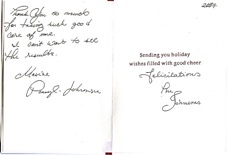 Thank You so much
for taking such good
care of me.
I can't wait to see
the results.
2009.
Sending you holiday
wishes filled with good cheer
Felicitations